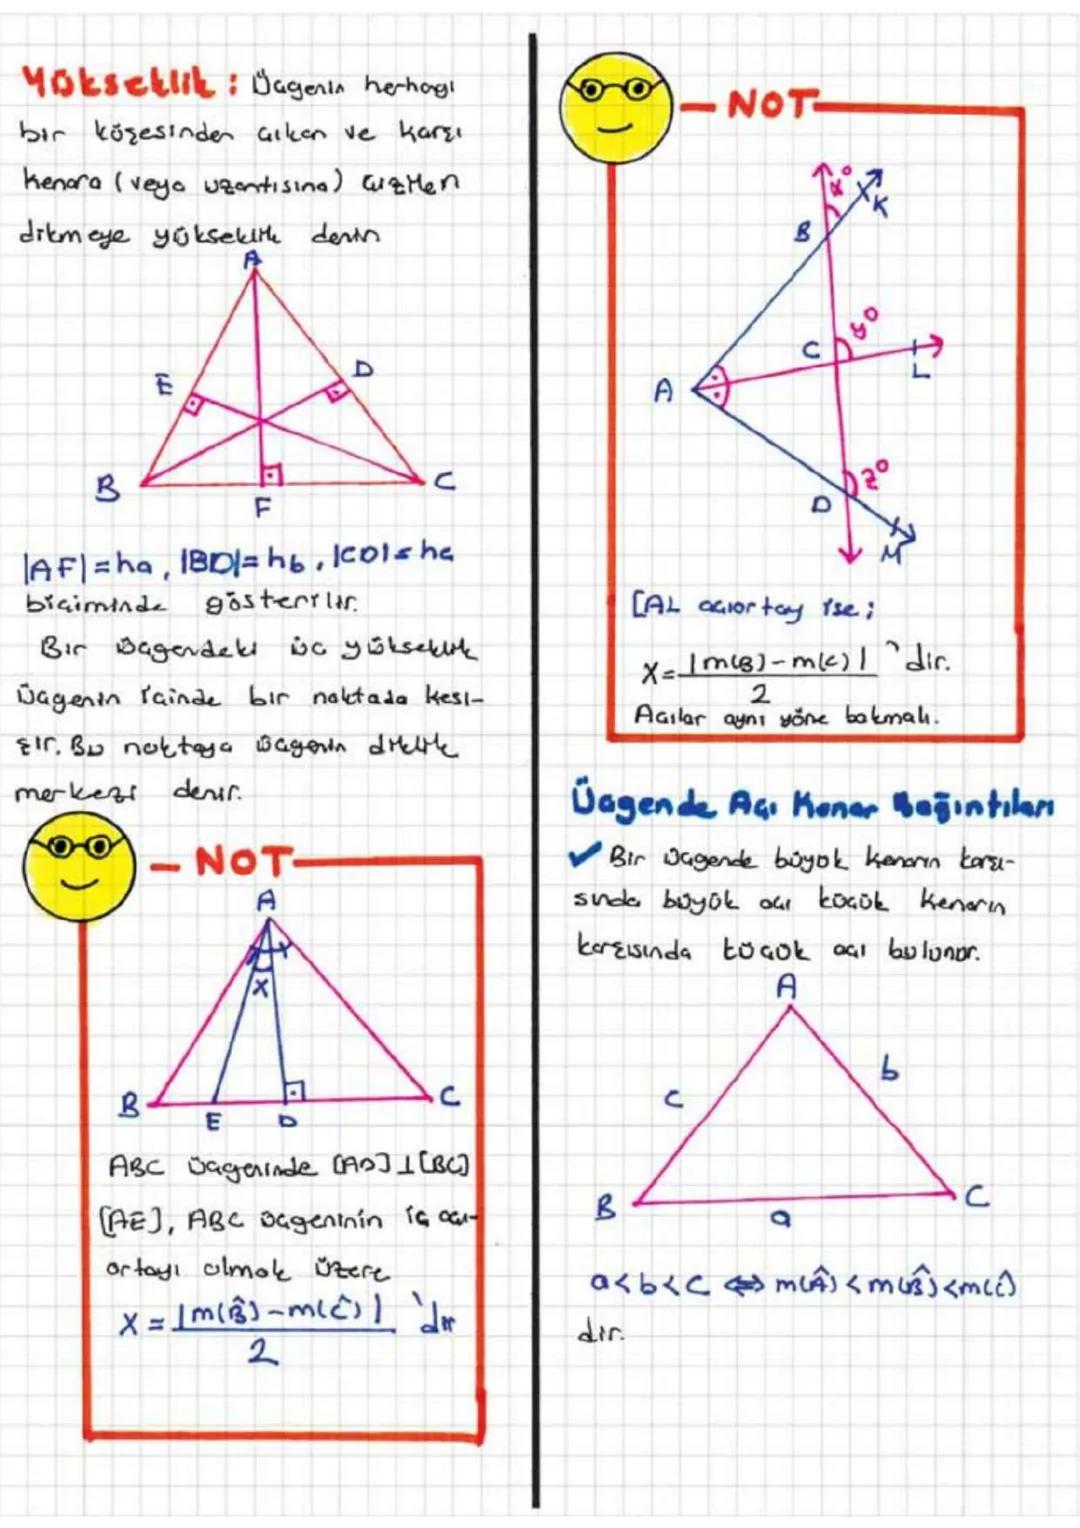 Yükseklik: Üçgenin herhagi
bir köşesinden çıkan ve karşı
kenara (veya uzantısına) çizilen
dikmeye yükseklik denir
A
E
D
B
C
F
|AF|=ha, |BD|=hb, |CD|=hc
biçiminde gösterilir.
Bir üçgendeki üç yükseklik
üçgenin içinde bir noktada kesi-
şir. Bu noktaya üçgenin diklik
merkezi denir.
- NOT-
A
x
B
C
E
D
ABC üçgeninde [AD]⊥[BC]
[AE], ABC üçgeninin iç açı-
ortayı olmak üzere
x = |m(B̂)-m(Ĉ)| 'dir
2
- NOT-
x°
K
B
y°
C
L
A
z°
D
M
[AL açıortay ise;
x = |m(B)-m(C)| 'dir.
2
Açılar aynı yöne bakmalı.
Üçgende Açı Kenar Bağıntıları
✓ Bir üçgende büyük kenarın karşı-
sında büyük açı küçük kenarın
karşısında küçük açı bulunur.
A
c
b
B
C
a
a<b<c ⇔ m(Â)<m(B̂)<m(Ĉ)
dir.